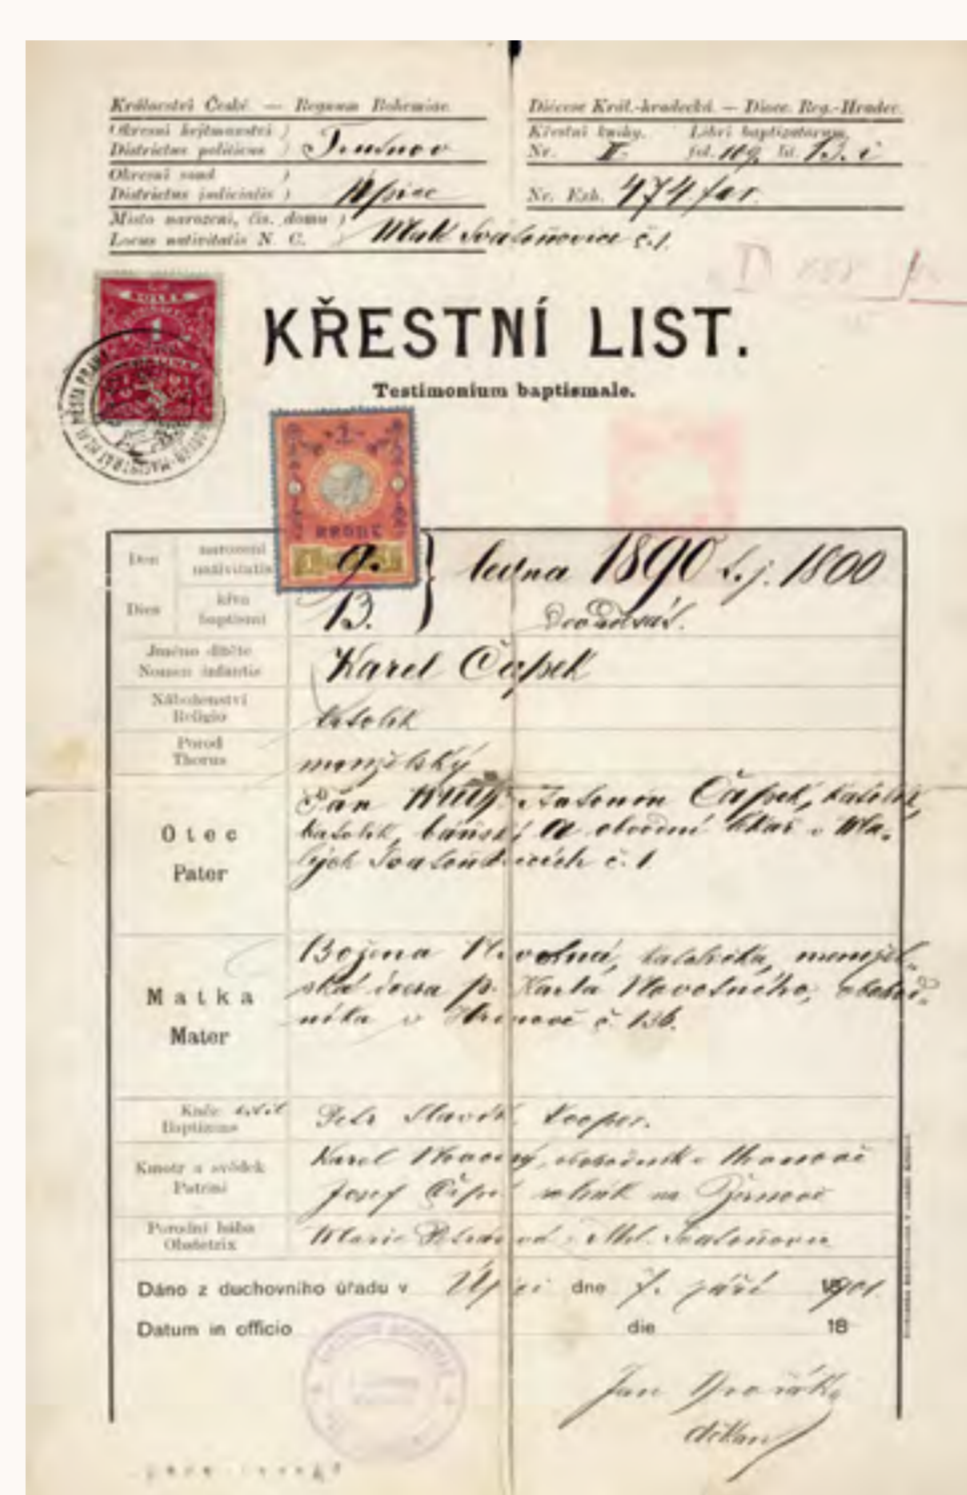 Království České. — Regnum Bohemiae.
Okresní hejtmanství )
Districtus politicus ) Trutnov
Okresní soud )
Districtus judicialis ) Úpice
Místo narození, čís. domu )
Locus nativitatis N. C. ) Malé Svatoňovice č.1.
Diécese Král.-hradecká. — Dioec. Reg.-Hradec.
Křestní knihy. Libri baptizatorum.
Nr. II. fol. 119. lit.
Nr. Exh. 474/far.
KŘESTNÍ LIST.
Testimonium baptismale.
1
Den narození
nativitatis 9. ledna 1890 t. j. 1800
Dies křtu
baptismi 13. devadesát.
Jméno dítěte
Nomen infantis Karel Čapek
Náboženství
Religio katolík
Porod
Thorus manželský
Otec
Pater
Jan Antonín Čapek, katolík,
katolík, báňský a obvodní lékař v Ma-
lých Svatoňovicích č. 1
Matka
Mater
Božena Novotná, katolička, manžel-
ská dcera p. Karla Novotného, obchod-
níka v Hronově č. 136.
Kněz křtil
Baptizans Petr Slavík kooper.
Kmotr a svědek
Patrini
Karel Novotný, obchodník v Hronově
Josef Čapek rolník na Žernově
Porodní bába
Obstetrix Marie v Mal. Svatoňovic
Dáno z duchovního úřadu v Úpici dne 7. září 1901
Datum in officio die 18
Jan Dvořák
děkan